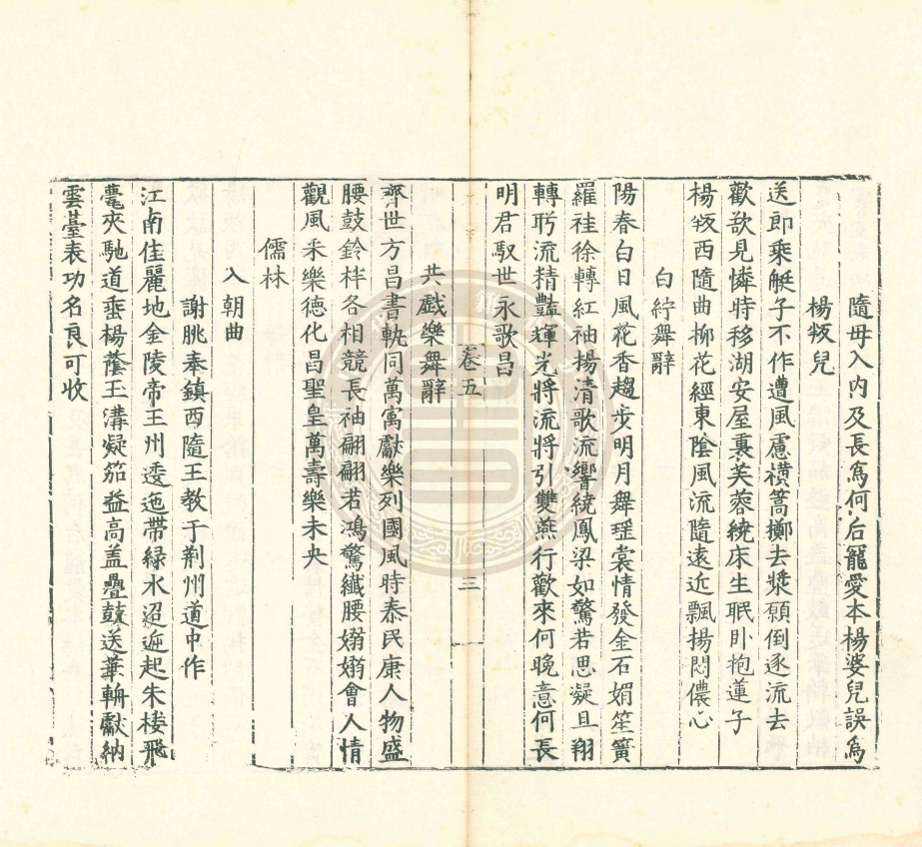 隨母入内及長爲何后寵愛本楊婆兒誤爲
楊叛兒
送郎乘艇子不作遭風慮橫篙擲去槳願倒逐流去
歡欲見憐時移湖安屋裏芙蓉繞床生眠卧抱蓮子
楊叛西隨曲柳花經東陰風流隨遠近飄揚悶儂心
白紵舞辭
陽春白日風花香趨步明月舞瑶裳情發金石媚笙簧
羅袿徐轉紅袖揚清歌流響繞鳳梁如驚若思凝且翔
轉眄流精艷輝光將流將引雙燕行歡來何晚意何長
明君馭世永歌昌
卷五 三
共戯樂舞辭
齊世方昌書軌同萬㝢獻樂列國風時泰民康人物盛
腰鼓鈴柈各相競長袖翩翩若鴻驚纖腰嫋嫋會人情
觀風采樂德化昌聖皇萬壽樂未央
儒林
入朝曲
謝朓奉鎮西隨王教于荆州道中作
江南佳麗地金陵帝王州逶迤帶緑水迢遞起朱楼飛
甍夾馳道垂楊蔭玉溝凝笳益高盖疊鼓送華輈獻納
雲臺表功名良可收